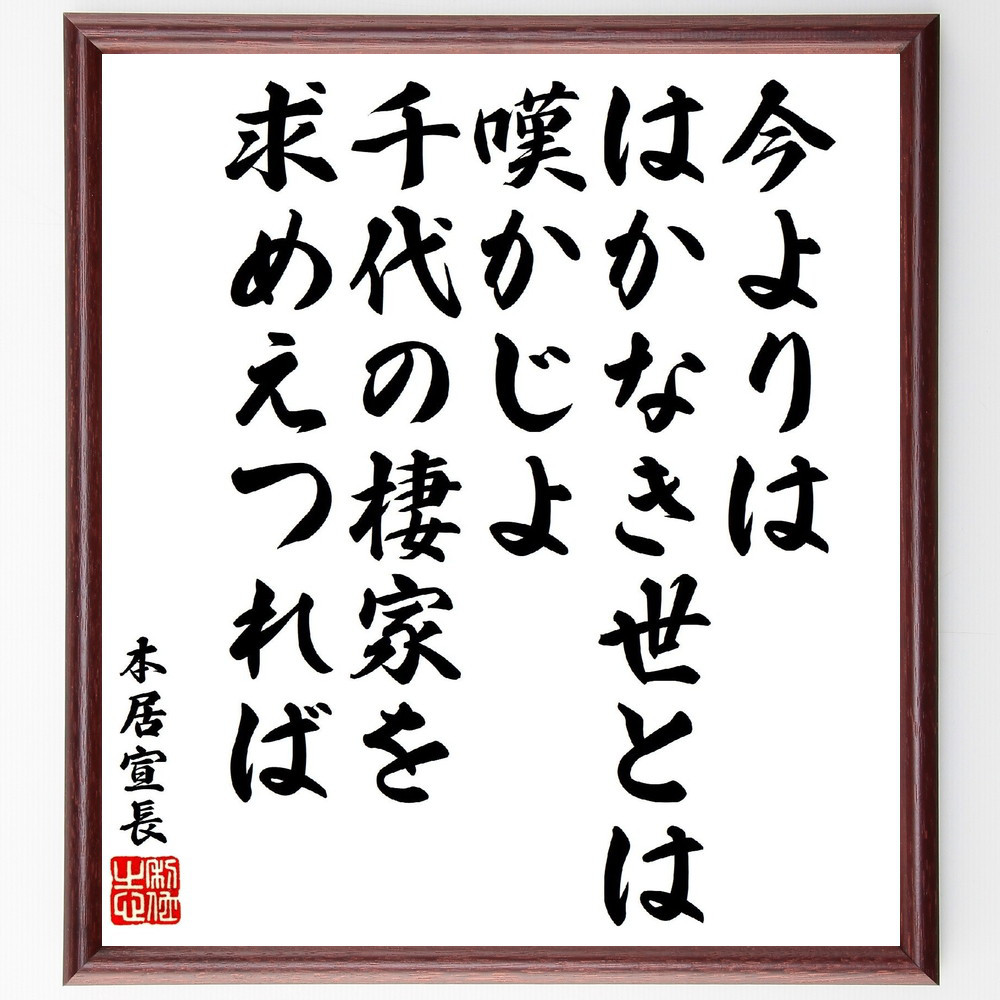 今よりは
はかなき世とは
嘆かじよ
千代の棲家を
求めえつれば
本居宣長